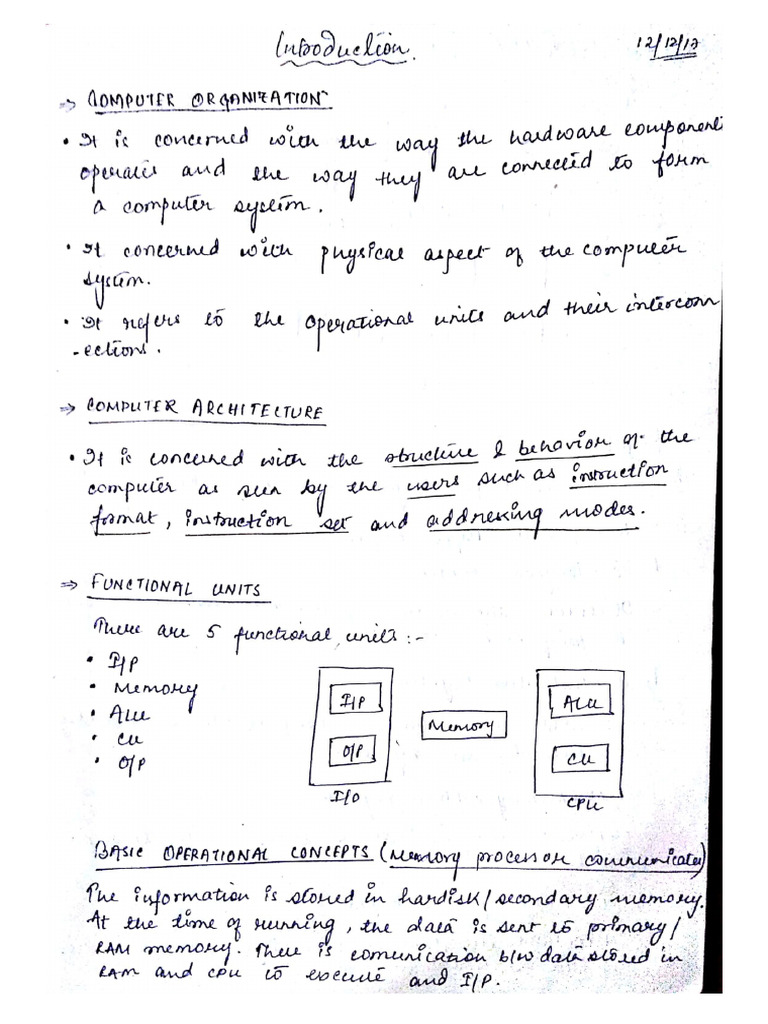 Introduction.
12/12/17
⇒ COMPUTER ORGANIZATION
• It is concerned with the way the hardware component
operates and the way they are connected to form
a computer system.
• It concerned with physical aspect of the computer
system.
• It refers to the operational units and their intercon
-ections.
⇒ COMPUTER ARCHITECTURE
• It is concerned with the structure & behavior of the
computer as seen by the users such as instruction
format, instruction set and addressing modes.
⇒ FUNCTIONAL UNITS
There are 5 functional units :-
• I/P
• Memory
• ALU
• CU
• O/P
I/P
O/P
I/O
Memory
ALU
CU
CPU
BASIC OPERATIONAL CONCEPTS (Memory processor communicates)
The information is stored in hardisk/secondary memory.
At the time of running, the data is sent to primary/
RAM memory. There is comunication b/w data stored in
RAM and CPU to execute and I/P.